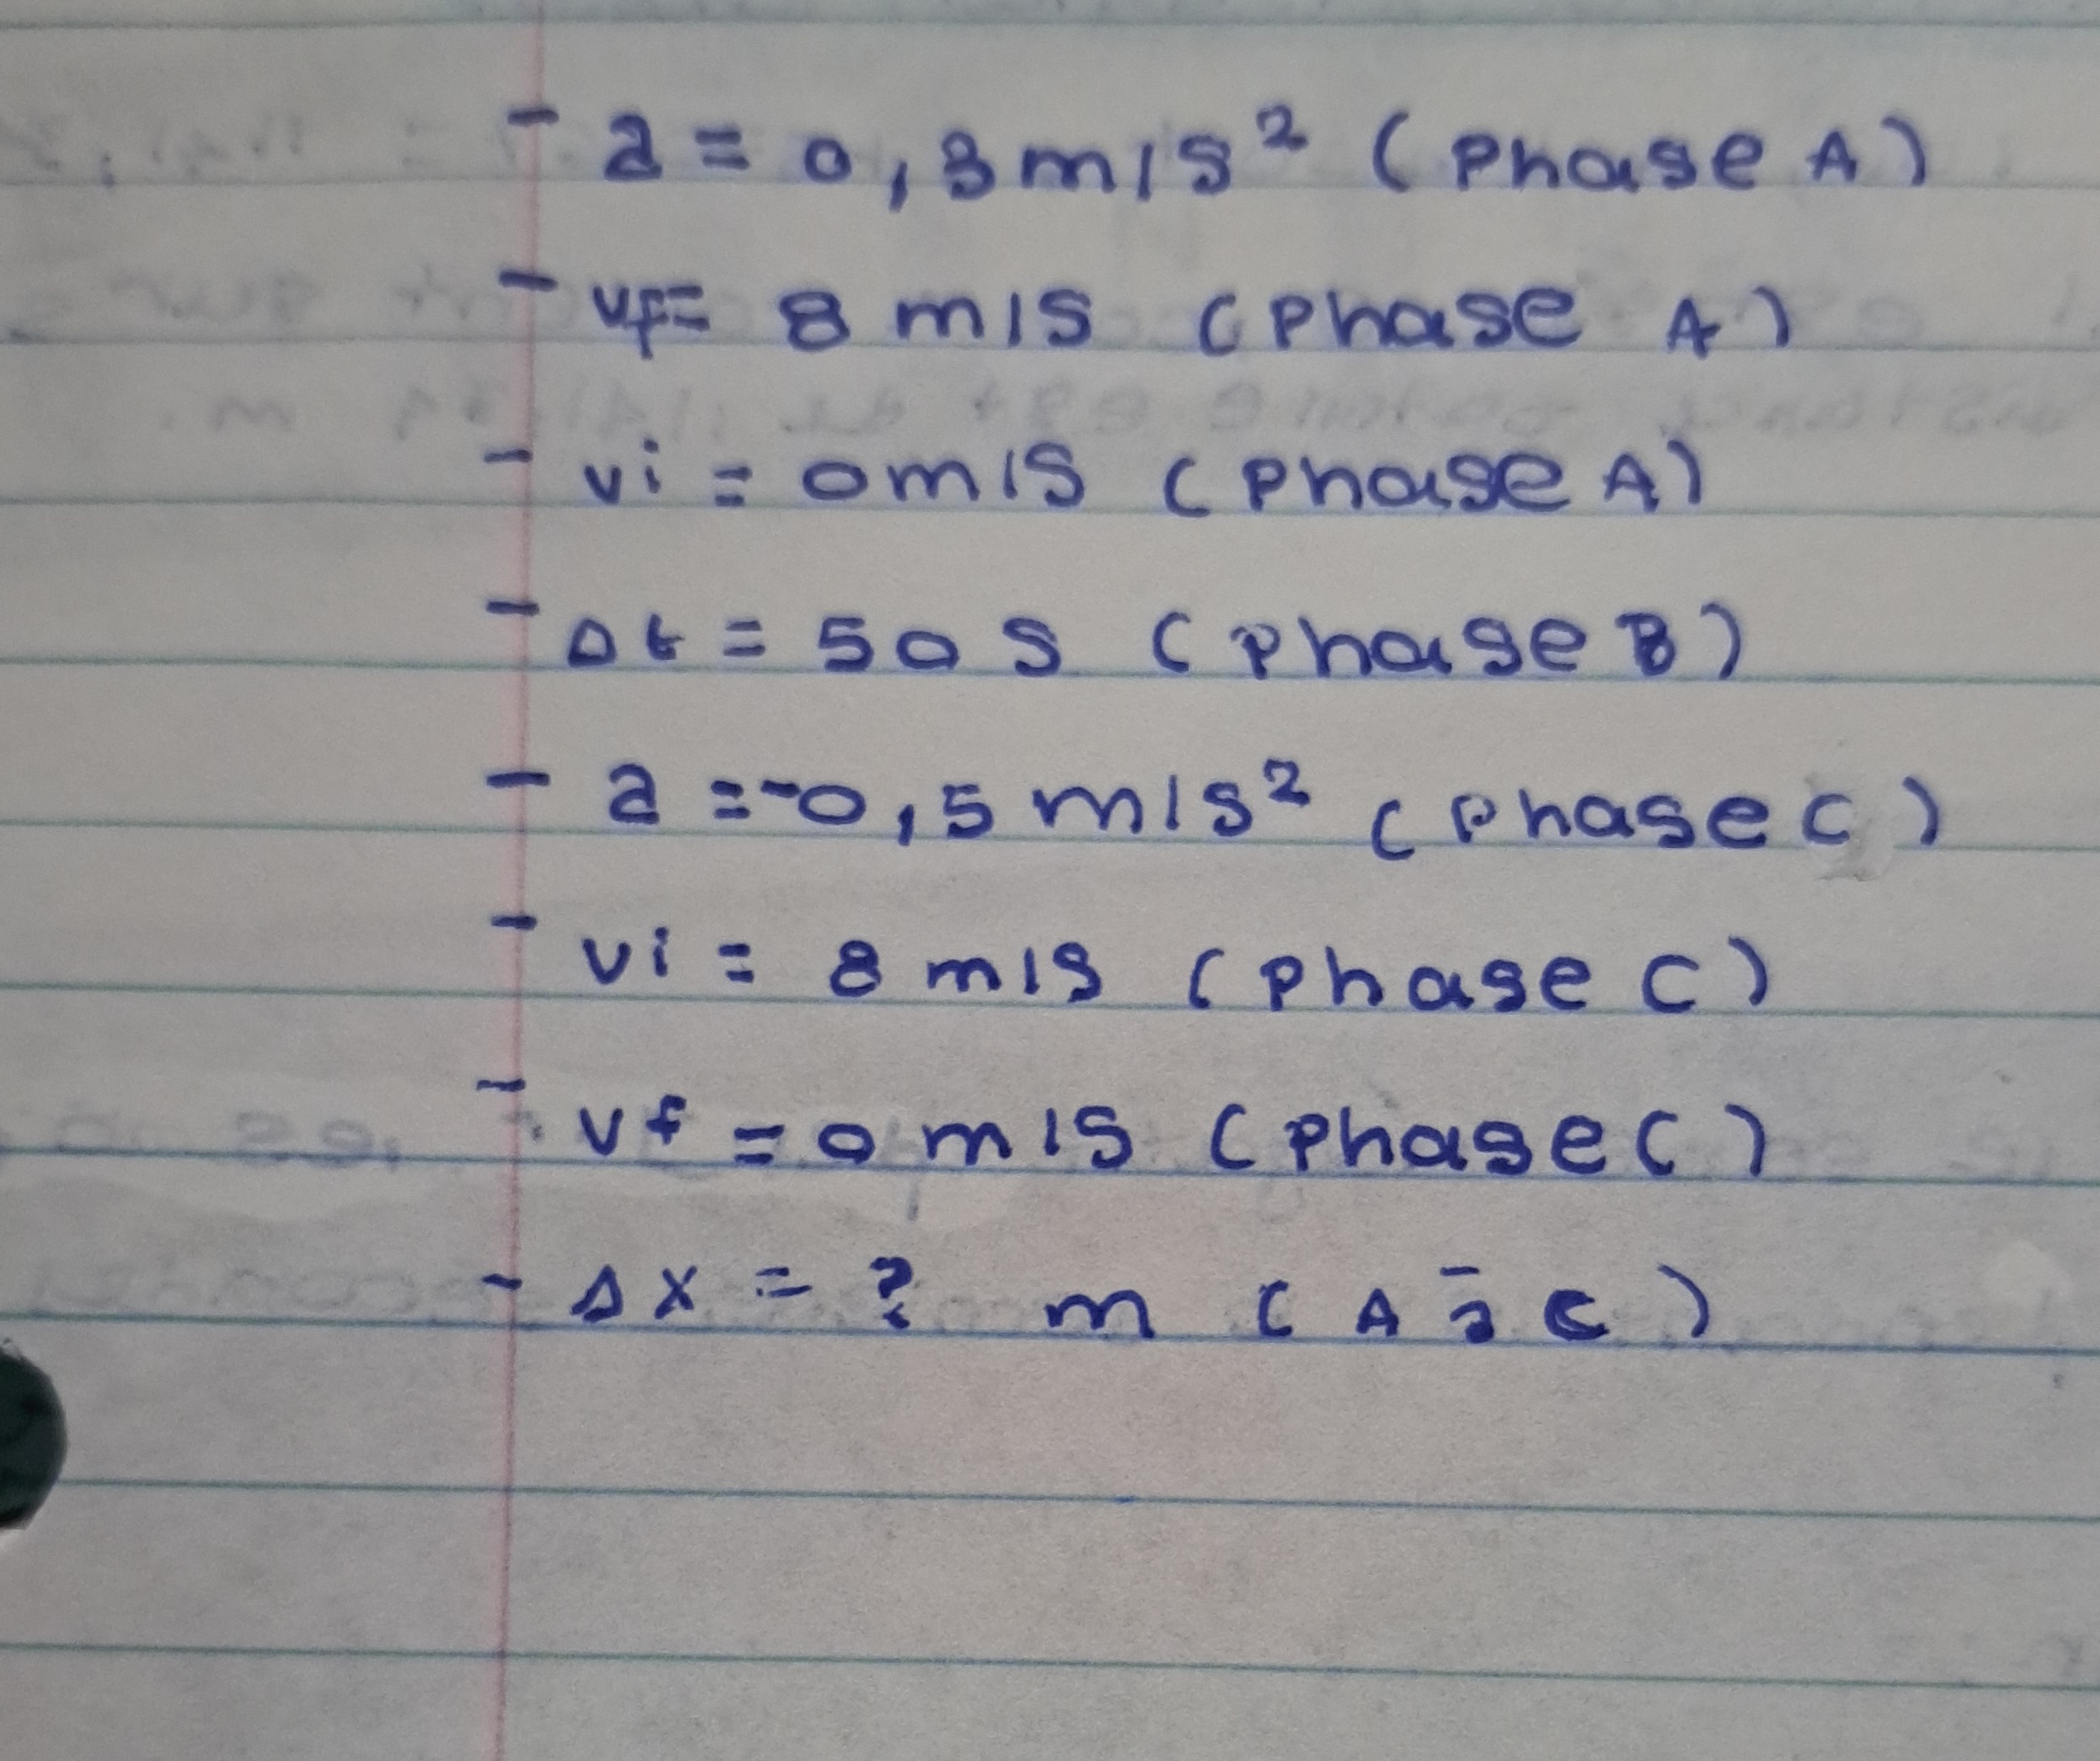 - a = 0,3 m/s² (Phase A)
- vf = 8 m/s (Phase A)
- vi = 0 m/s (Phase A)
- Δt = 50 s (Phase B)
- a = -0,5 m/s² (Phase C)
- vi = 8 m/s (Phase C)
- vf = 0 m/s (Phase C)
- Δx = ? m (A à C)